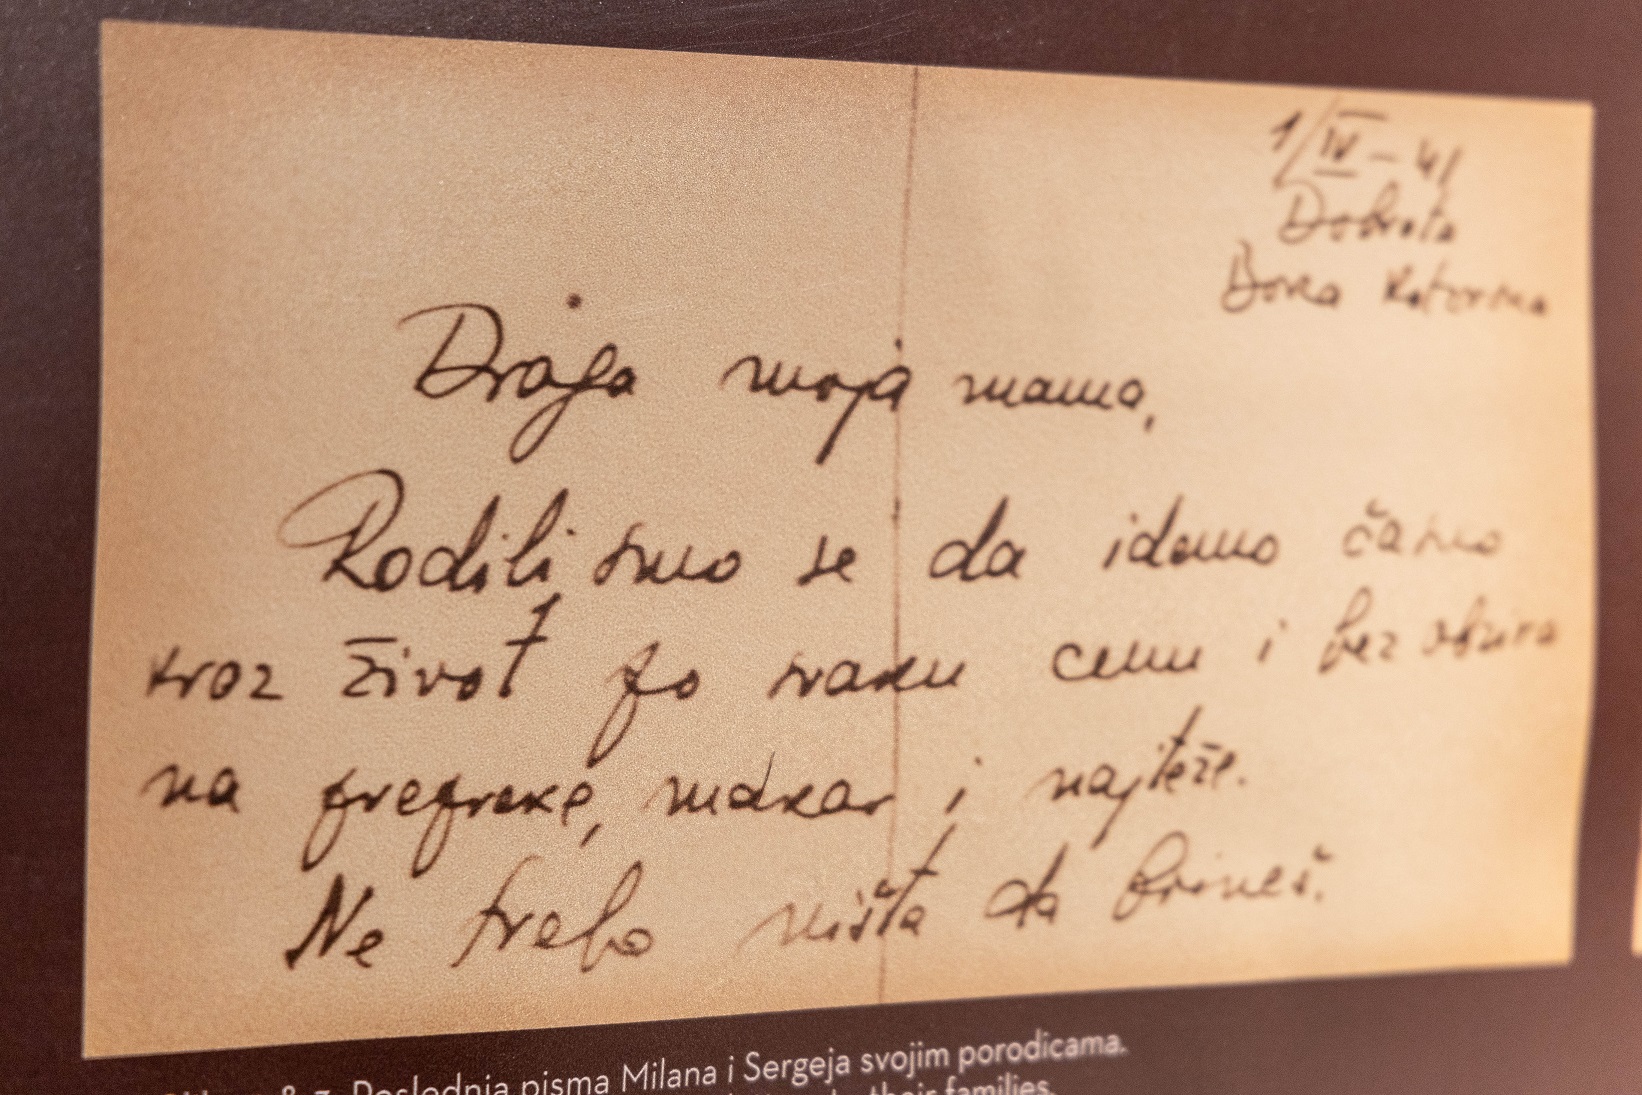 1/IV-41
Dobrota
Boka Kotorska
Draga moja mama,
Rodili smo se da idemo časno
kroz život po svaku cenu i bez obzira
na prepreke, makar i najteže.
Ne treba ništa da brineš.
Poslednja pisma Milana i Sergeja svojim porodicama.
their families.